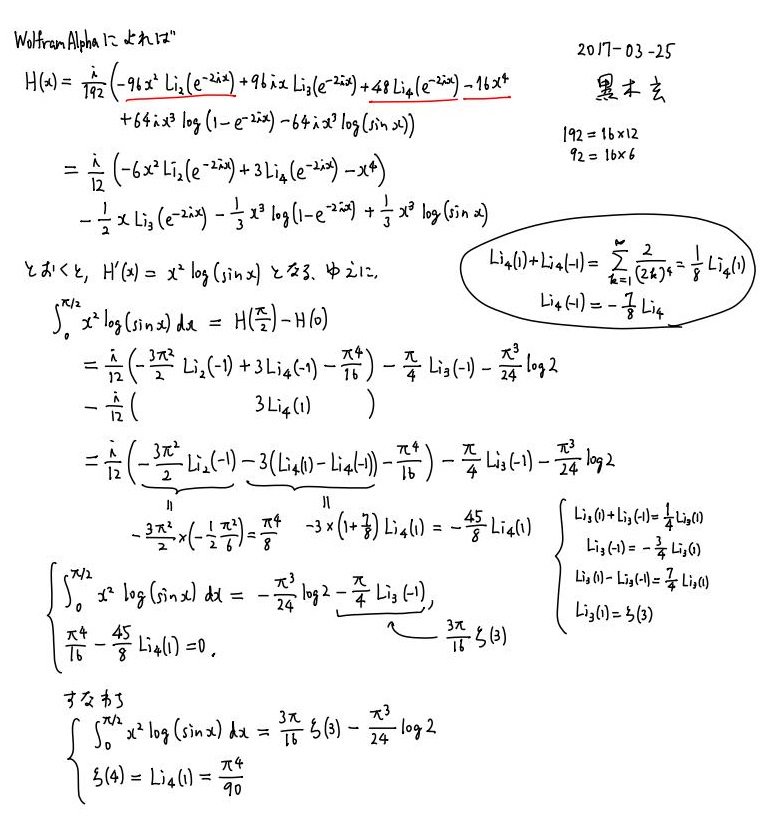 WolframAlphaによれば
2017-03-25
黒木玄
H(x) = i/192 (-96x² Li₂(e^{-2ix}) + 96ix Li₃(e^{-2ix}) + 48Li₄(e^{-2ix}) - 16x⁴
+ 64ix³ log(1-e^{-2ix}) - 64ix³ log(sin x))
192 = 16×12
92 = 16×6
= i/12 (-6x² Li₂(e^{-2ix}) + 3Li₄(e^{-2ix}) - x⁴)
- 1/2 x Li₃(e^{-2ix}) - 1/3 x³ log(1-e^{-2ix}) + 1/3 x³ log(sin x)
とおくと, H'(x) = x² log(sin x) となる. ゆえに,
Li₄(1) + Li₄(-1) = Σ_{k=1}^{∞} 2/(2k)⁴ = 1/8 Li₄(1)
Li₄(-1) = -7/8 Li₄
∫₀^{π/2} x² log(sin x) dx = H(π/2) - H(0)
= i/12 (-3π²/2 Li₂(-1) + 3Li₄(-1) - π⁴/16) - π/4 Li₃(-1) - π³/24 log2
- i/12 ( 3Li₄(1) )
= i/12 (-3π²/2 Li₂(-1) - 3(Li₄(1) - Li₄(-1)) - π⁴/16) - π/4 Li₃(-1) - π³/24 log2
-3π²/2 × (-1/2 π²/6) = π⁴/8
-3×(1+7/8) Li₄(1) = -45/8 Li₄(1)
Li₃(1) + Li₃(-1) = 1/4 Li₃(1)
Li₃(-1) = -3/4 Li₃(1)
Li₃(1) - Li₃(-1) = 7/4 Li₃(1)
Li₃(1) = ζ(3)
∫₀^{π/2} x² log(sin x) dx = -π³/24 log2 - π/4 Li₃(-1),
3π/16 ζ(3)
π⁴/16 - 45/8 Li₄(1) = 0.
すなわち
∫₀^{π/2} x² log(sin x) dx = 3π/16 ζ(3) - π³/24 log2
ζ(4) = Li₄(1) = π⁴/90